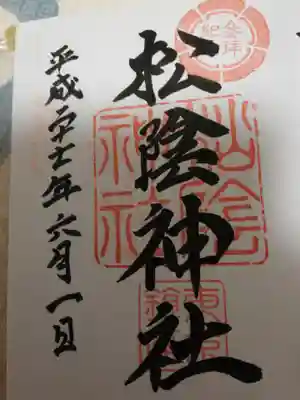 参拝
松陰神社
平成二十七年六月一日
松陰
神社